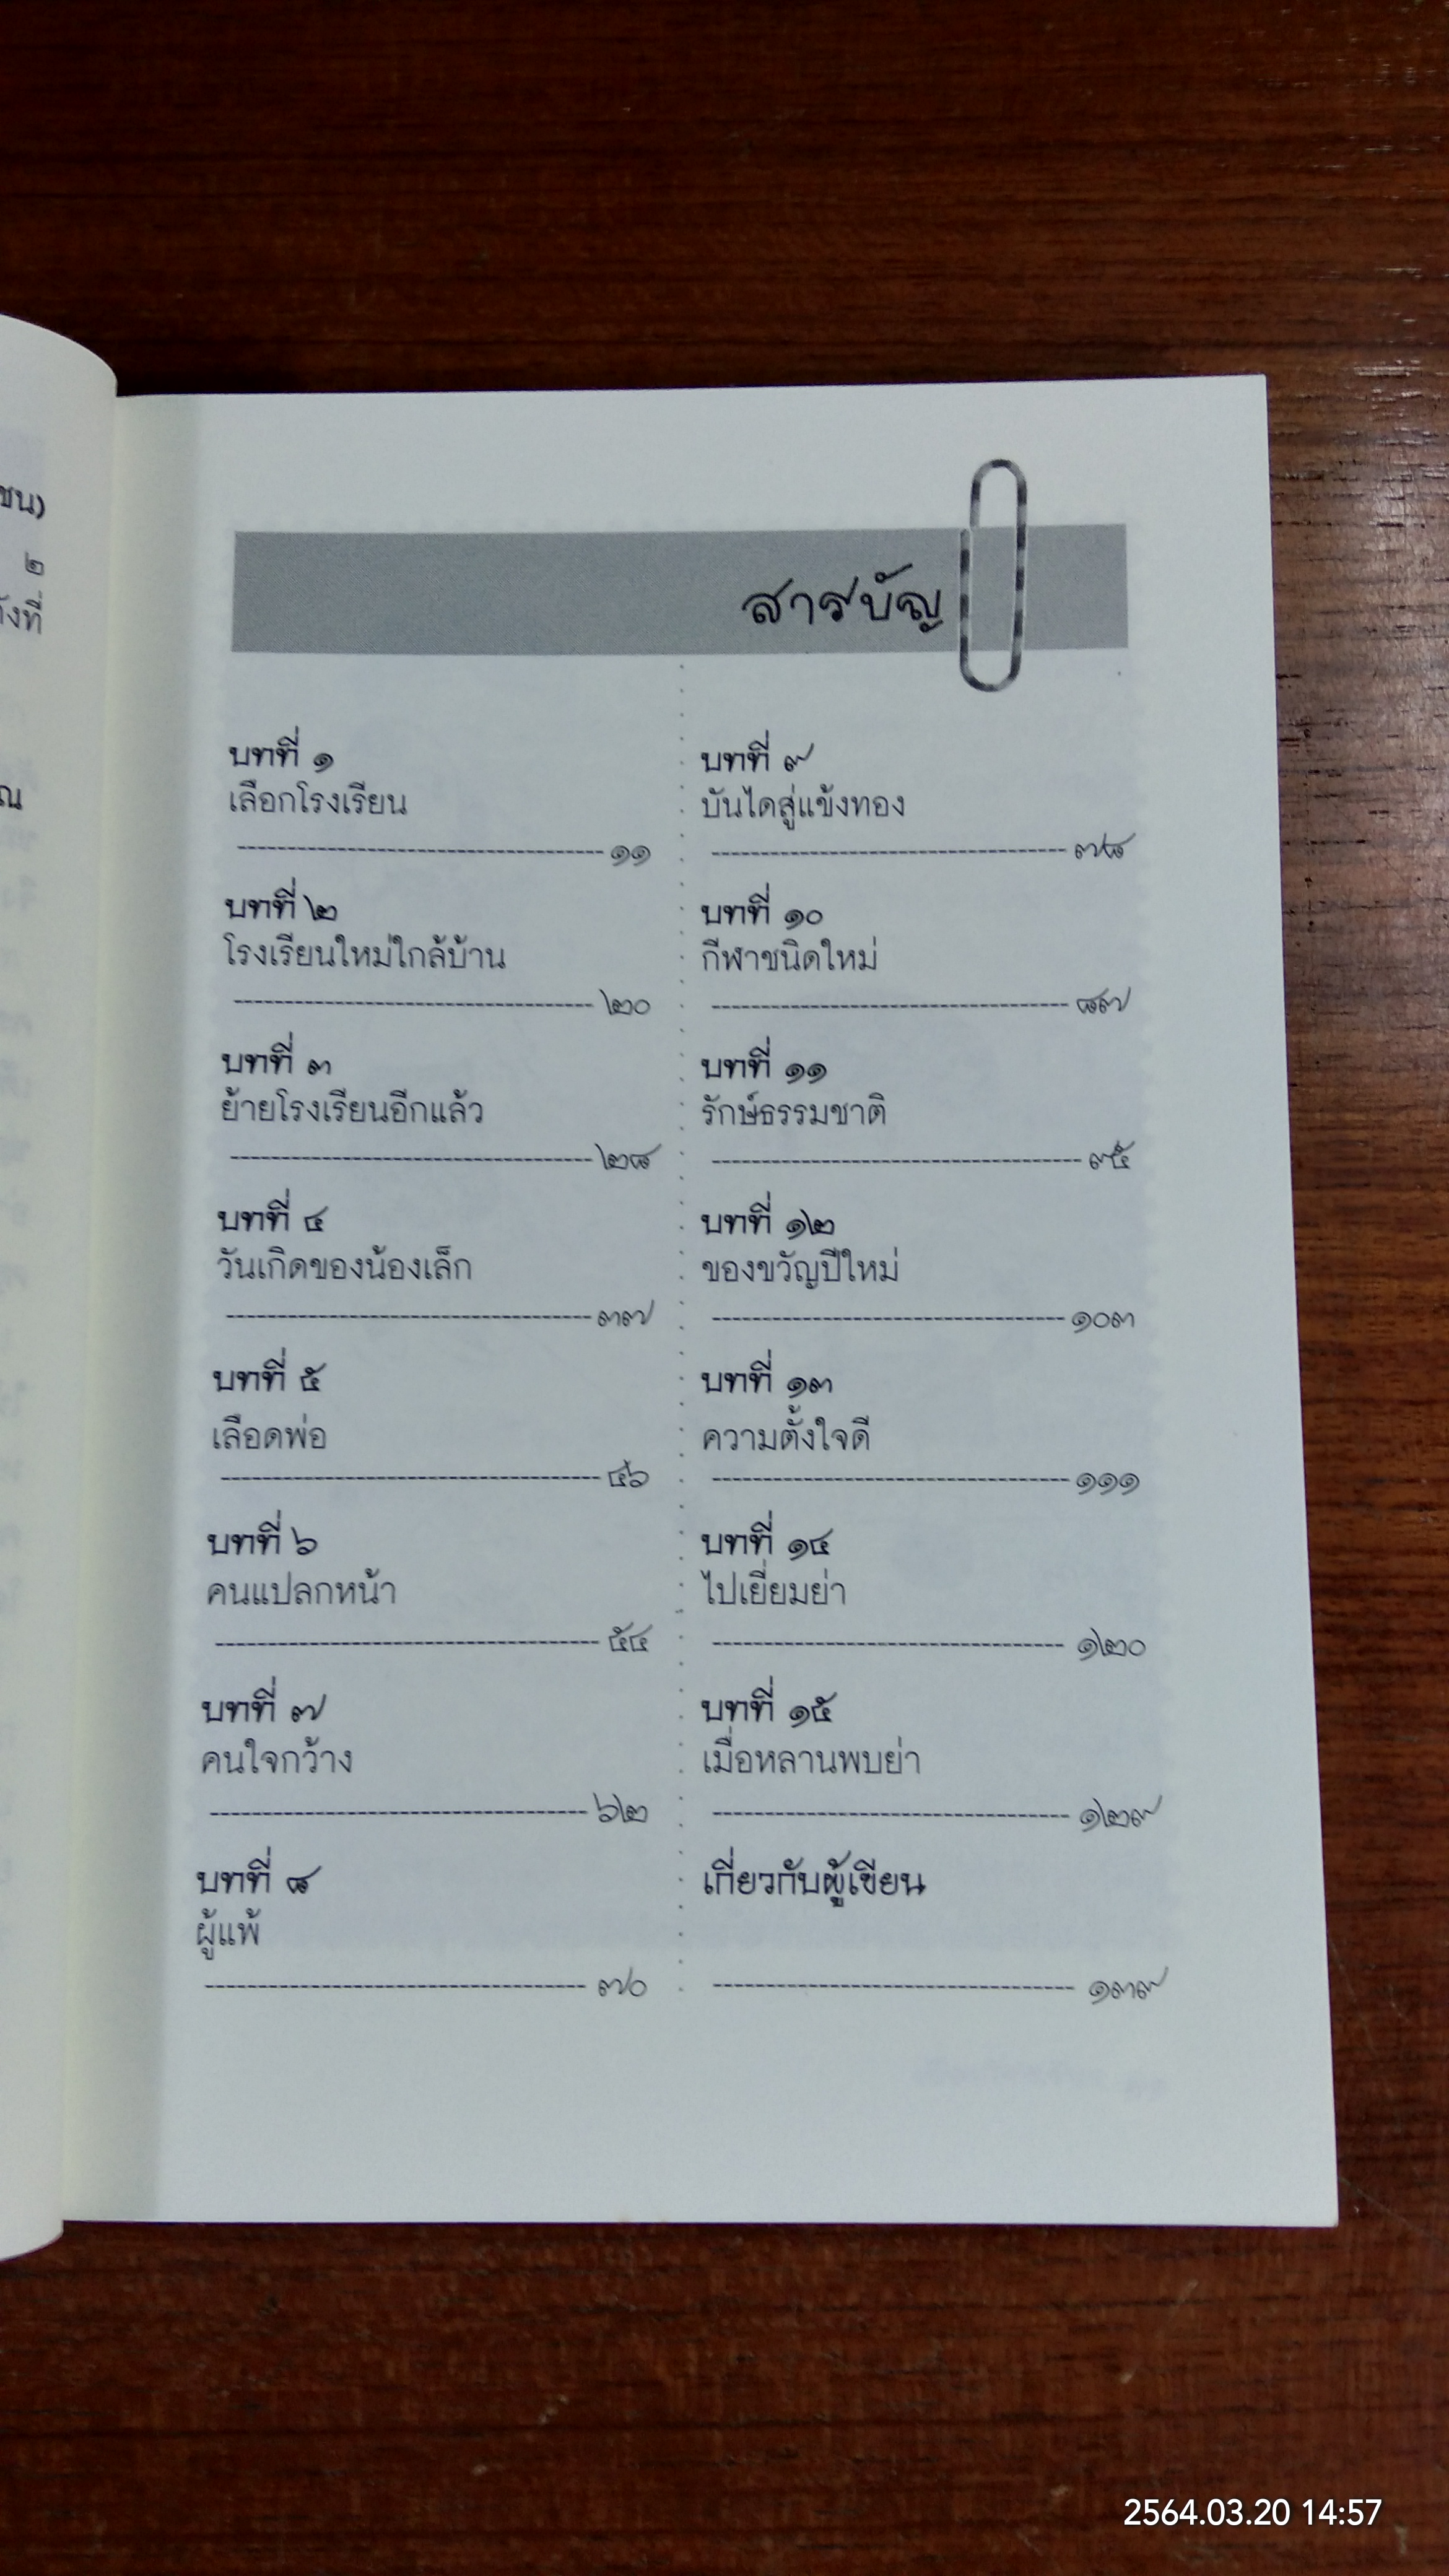 สารบัญ
บทที่ ๑
เลือกโรงเรียน
๑๑
บทที่ ๒
โรงเรียนใหม่ใกล้บ้าน
๒๐
บทที่ ๓
ย้ายโรงเรียนอีกแล้ว
๒๘
บทที่ ๔
วันเกิดของน้องเล็ก
๓๗
บทที่ ๕
เลือดพ่อ
๔๖
บทที่ ๖
คนแปลกหน้า
๕๔
บทที่ ๗
คนใจกว้าง
๖๒
บทที่ ๘
ผู้แพ้
๗๐
บทที่ ๙
บันไดสู่แข้งทอง
๗๘
บทที่ ๑๐
กีฬาชนิดใหม่
๘๗
บทที่ ๑๑
รักษ์ธรรมชาติ
๙๕
บทที่ ๑๒
ของขวัญปีใหม่
๑๐๓
บทที่ ๑๓
ความตั้งใจดี
๑๑๑
บทที่ ๑๔
ไปเยี่ยมย่า
๑๒๐
บทที่ ๑๕
เมื่อหลานพบย่า
๑๒๙
เกี่ยวกับผู้เขียน
๑๓๙
2564.03.20 14:57